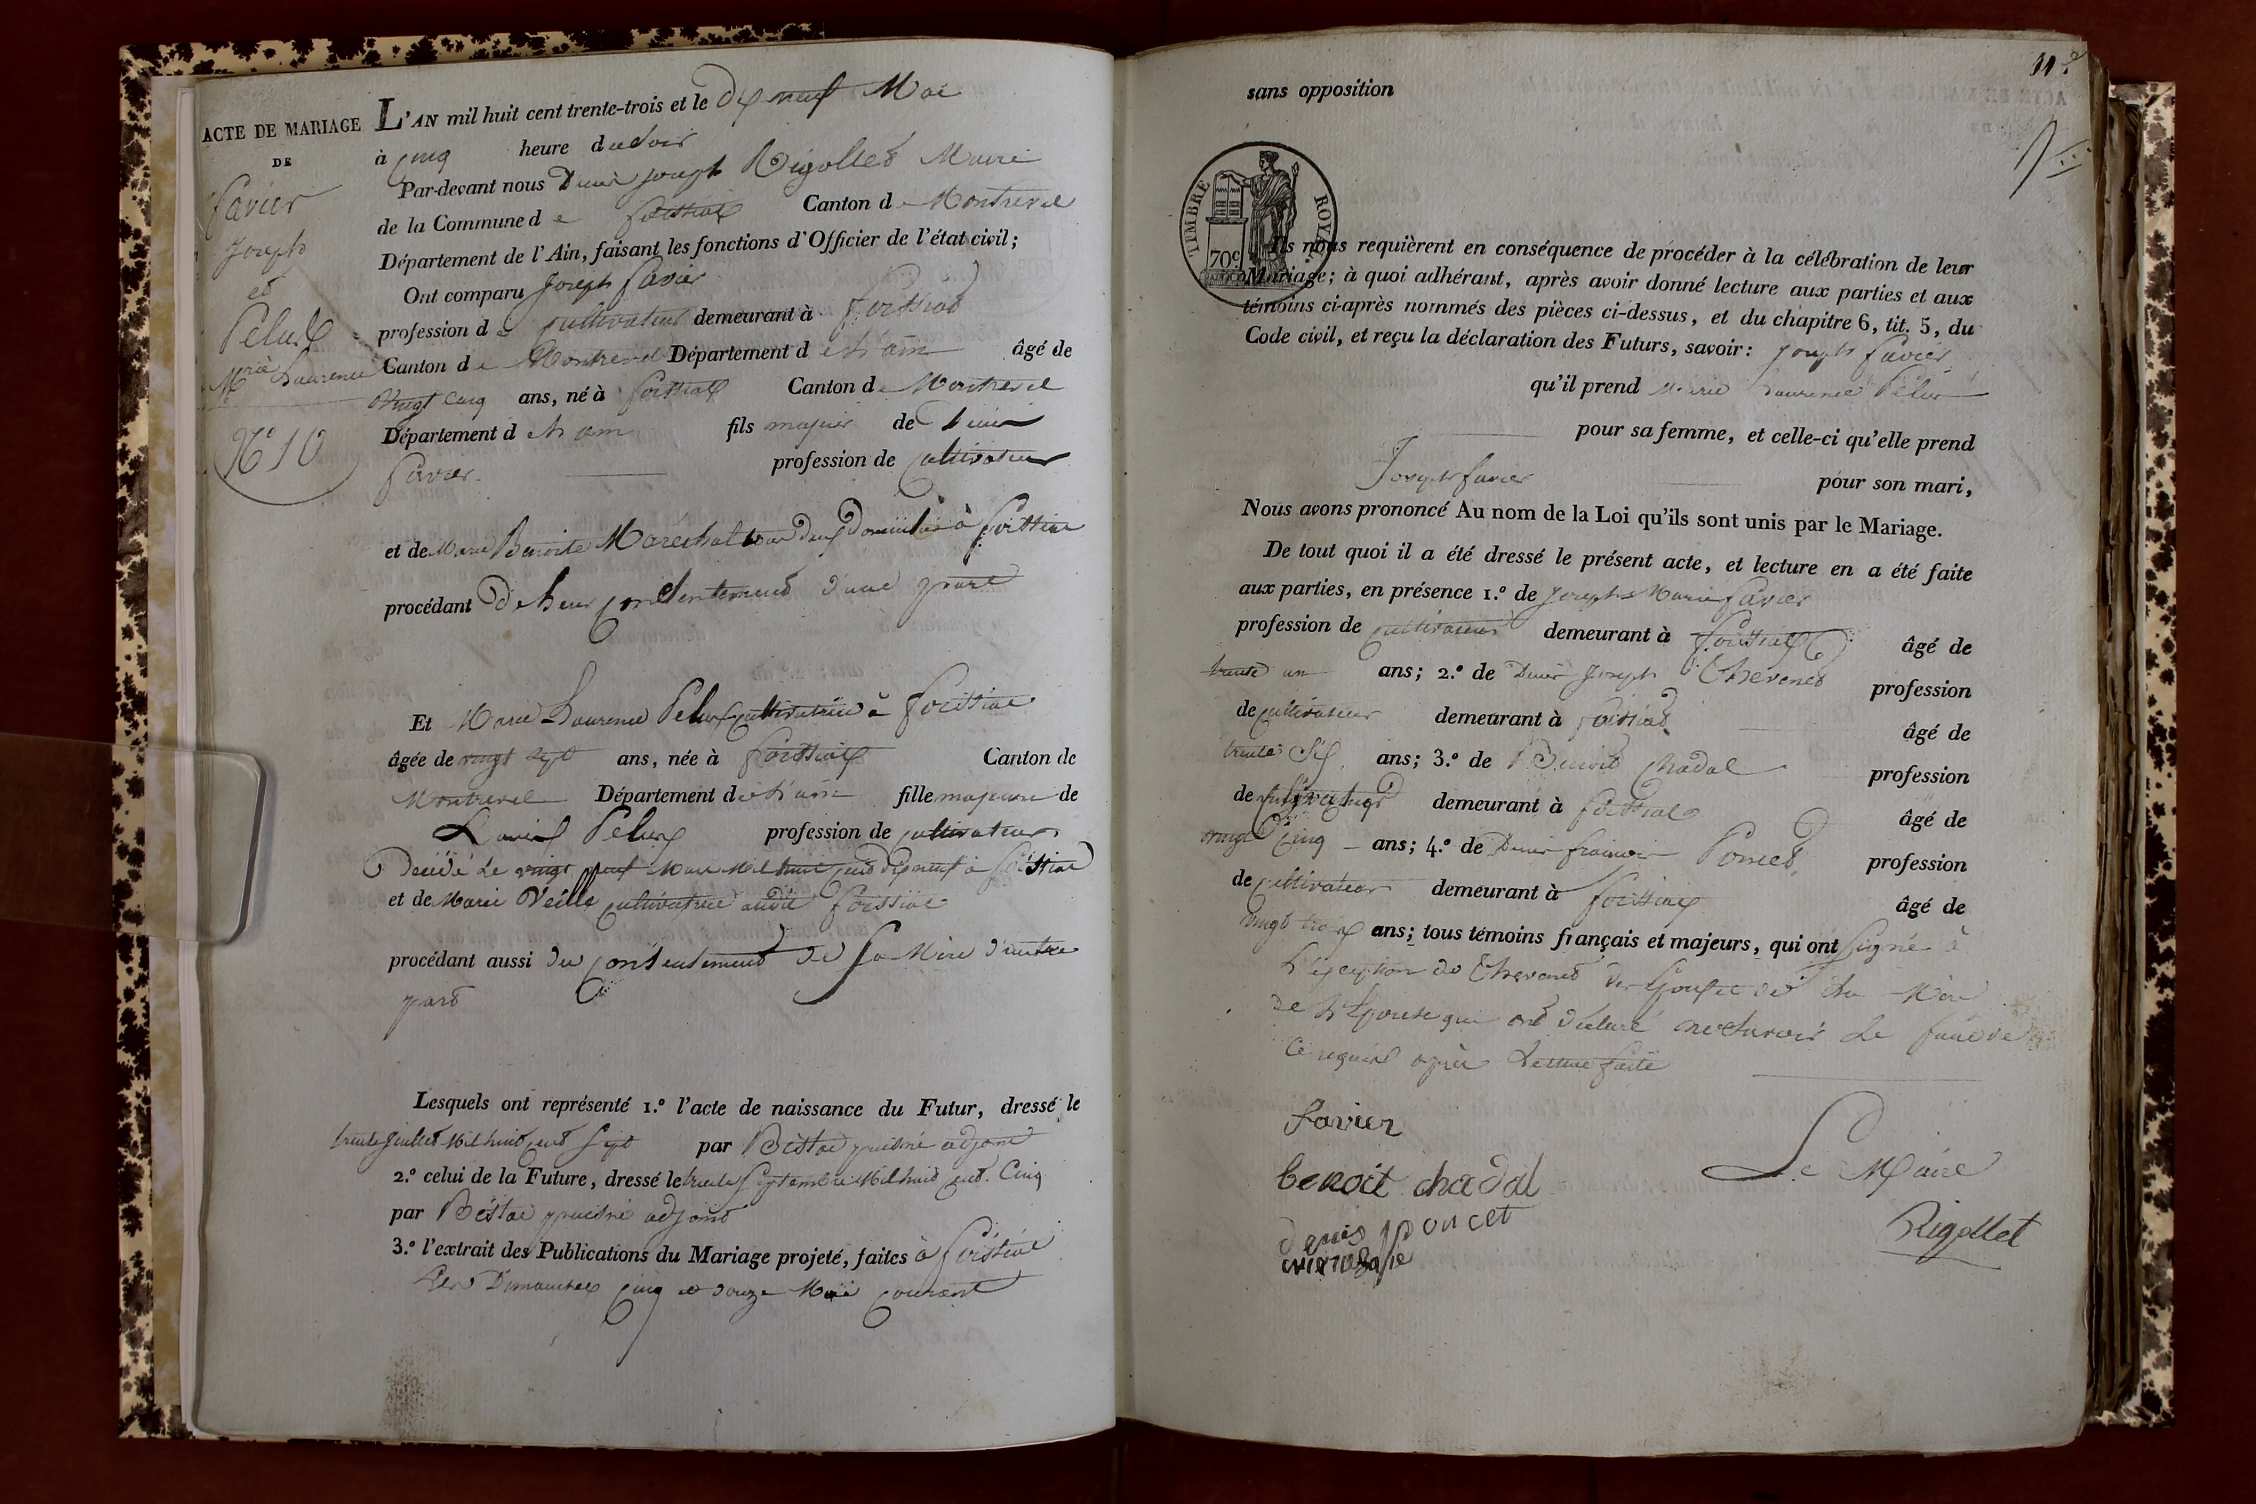 ACTE DE MARIAGE
DE
favier
Joseph
et
Pelux
Marie Laurence
N° 10
L'AN mil huit cent trente-trois et le Dix neuf Mai
à cinq heure du soir
Par-devant nous Denis joseph Rigollet Maire
de la Commune de foissiat Canton de Montrevel
Département de l'Ain, faisant les fonctions d'Officier de l'état civil;
Ont comparu Joseph favier
profession de cultivateur demeurant à foissiat
Canton de Montrevel Département de l'ain âgé de
vingt cinq ans, né à foissiat Canton de Montrevel
Département de l'ain fils majeur de Denis
favier profession de cultivateur
et de Marie Benoite Maréchal tous deux domiciliés à foissiat
procédant De leur consentement d'une part
Et Marie Laurence Pelux cultivatrice à foissiat
âgée de vingt sept ans, née à foissiat Canton de
Montrevel Département de l'ain fille majeure de
Pelux profession de cultivateur
Décédé le vingt neuf Mars Mil huit cent dix neuf à foissiat
et de Marie Véille cultivatrice audit foissiat
procédant aussi du consentement de sa Mère d'autre
part
Lesquels ont représenté 1.° l'acte de naissance du Futur, dressé le
trente juillet Mil huit cent sept par adjoint
2.° celui de la Future, dressé le trente Septembre Mil huit cent Cinq
par adjoint
3.° l'extrait des Publications du Mariage projeté, faites à foissiat
Les Dimanches cinq et douze Mai courant
11
sans opposition
TIMBRE ROYAL
70c
Ils nous requièrent en conséquence de procéder à la célébration de leur
Mariage; à quoi adhérant, après avoir donné lecture aux parties et aux
témoins ci-après nommés des pièces ci-dessus, et du chapitre 6, tit. 5, du
Code civil, et reçu la déclaration des Futurs, savoir: Joseph favier
qu'il prend Marie Laurence Pelux
pour sa femme, et celle-ci qu'elle prend
Joseph favier pour son mari,
Nous avons prononcé Au nom de la Loi qu'ils sont unis par le Mariage.
De tout quoi il a été dressé le présent acte, et lecture en a été faite
aux parties, en présence 1.° de Joseph Marie favier
profession de cultivateur demeurant à foissiat âgé de
trente un ans; 2.° de Denis Joseph Thevenet profession
de cultivateur demeurant à foissiat âgé de
trente six ans; 3.° de Benoit Chadal profession
de cultivateur demeurant à foissiat âgé de
vingt Cinq ans; 4.° de Denis francois Poncet profession
de cultivateur demeurant à foissiat âgé de
vingt trois ans; tous témoins français et majeurs, qui ont signé à
l'exception de Thevenet des Epoux et de la Mère
de l'Epouse qui ont déclaré ne savoir le faire de
ce requis après Lecture faite
favier
benoit chadal
denis poncet
Le Maire
Rigollet